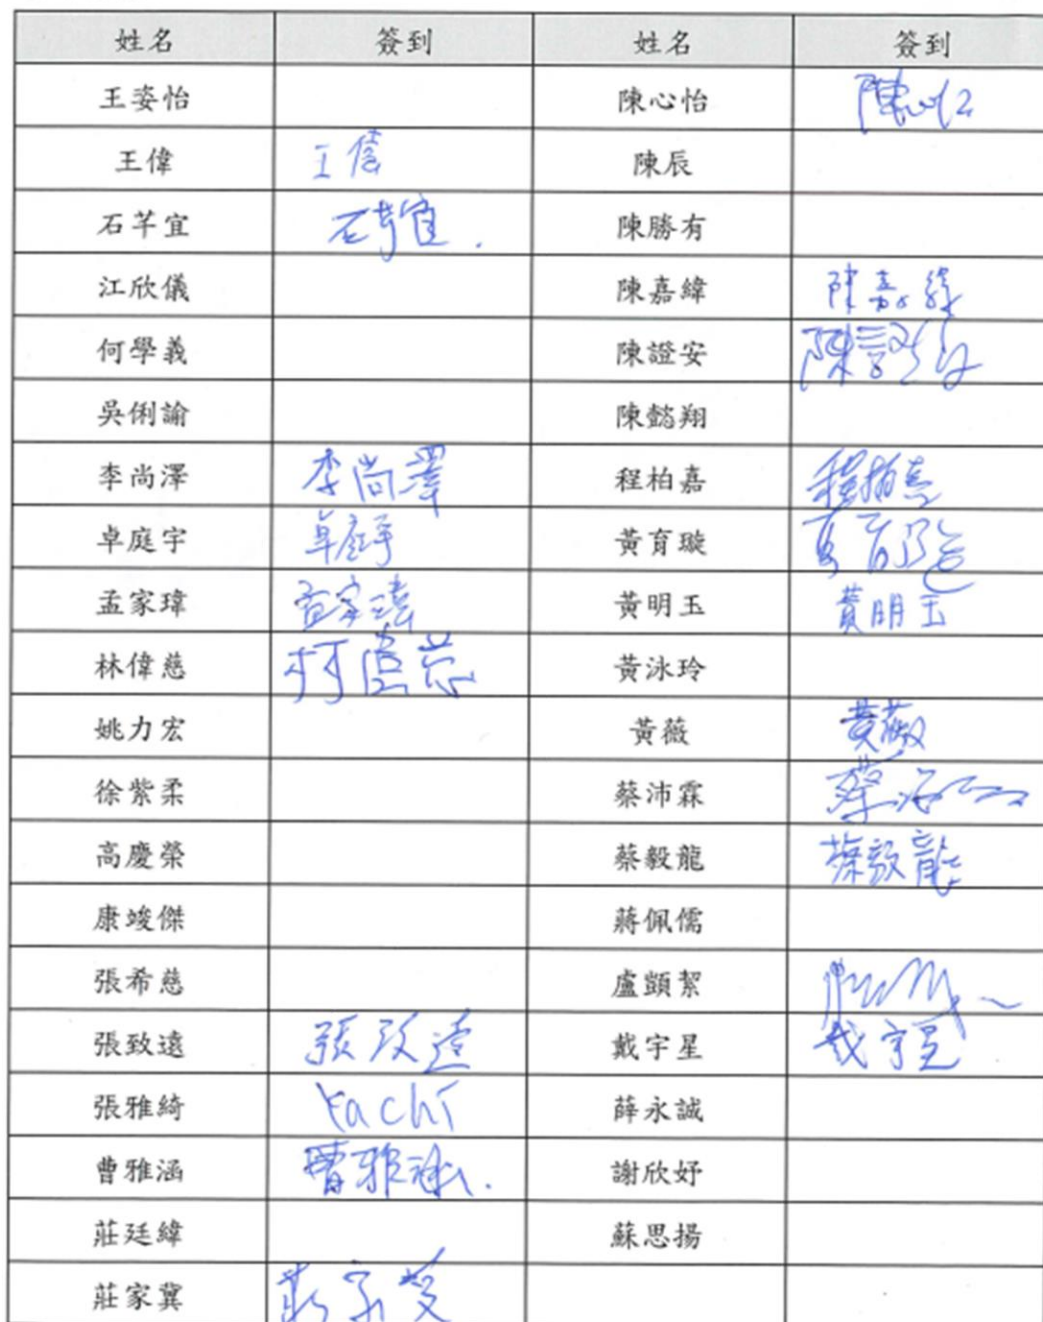 姓名 簽到 姓名 簽到
王姿怡 陳心怡 陳心怡
王偉 王偉 陳辰
石芊宜 石芊宜 陳勝有
江欣儀 陳嘉緯 陳嘉緯
何學義 陳證安 陳證安
吳俐諭 陳懿翔
李尚澤 李尚澤 程柏嘉 程柏嘉
卓庭宇 卓庭宇 黃育璇 黃育璇
孟家瑋 孟家瑋 黃明玉 黃明玉
林偉慈 林偉慈 黃泳玲
姚力宏 黃薇 黃薇
徐紫柔 蔡沛霖 蔡沛霖
高慶榮 蔡毅龍 蔡毅龍
康竣傑 蔣佩儒
張希慈 盧顗絜
張致遠 張致遠 戴宇星 戴宇星
張雅綺 Yachi 薛永誠
曹雅涵 曹雅涵 謝欣妤
莊廷緯 蘇思揚
莊家冀 莊家冀